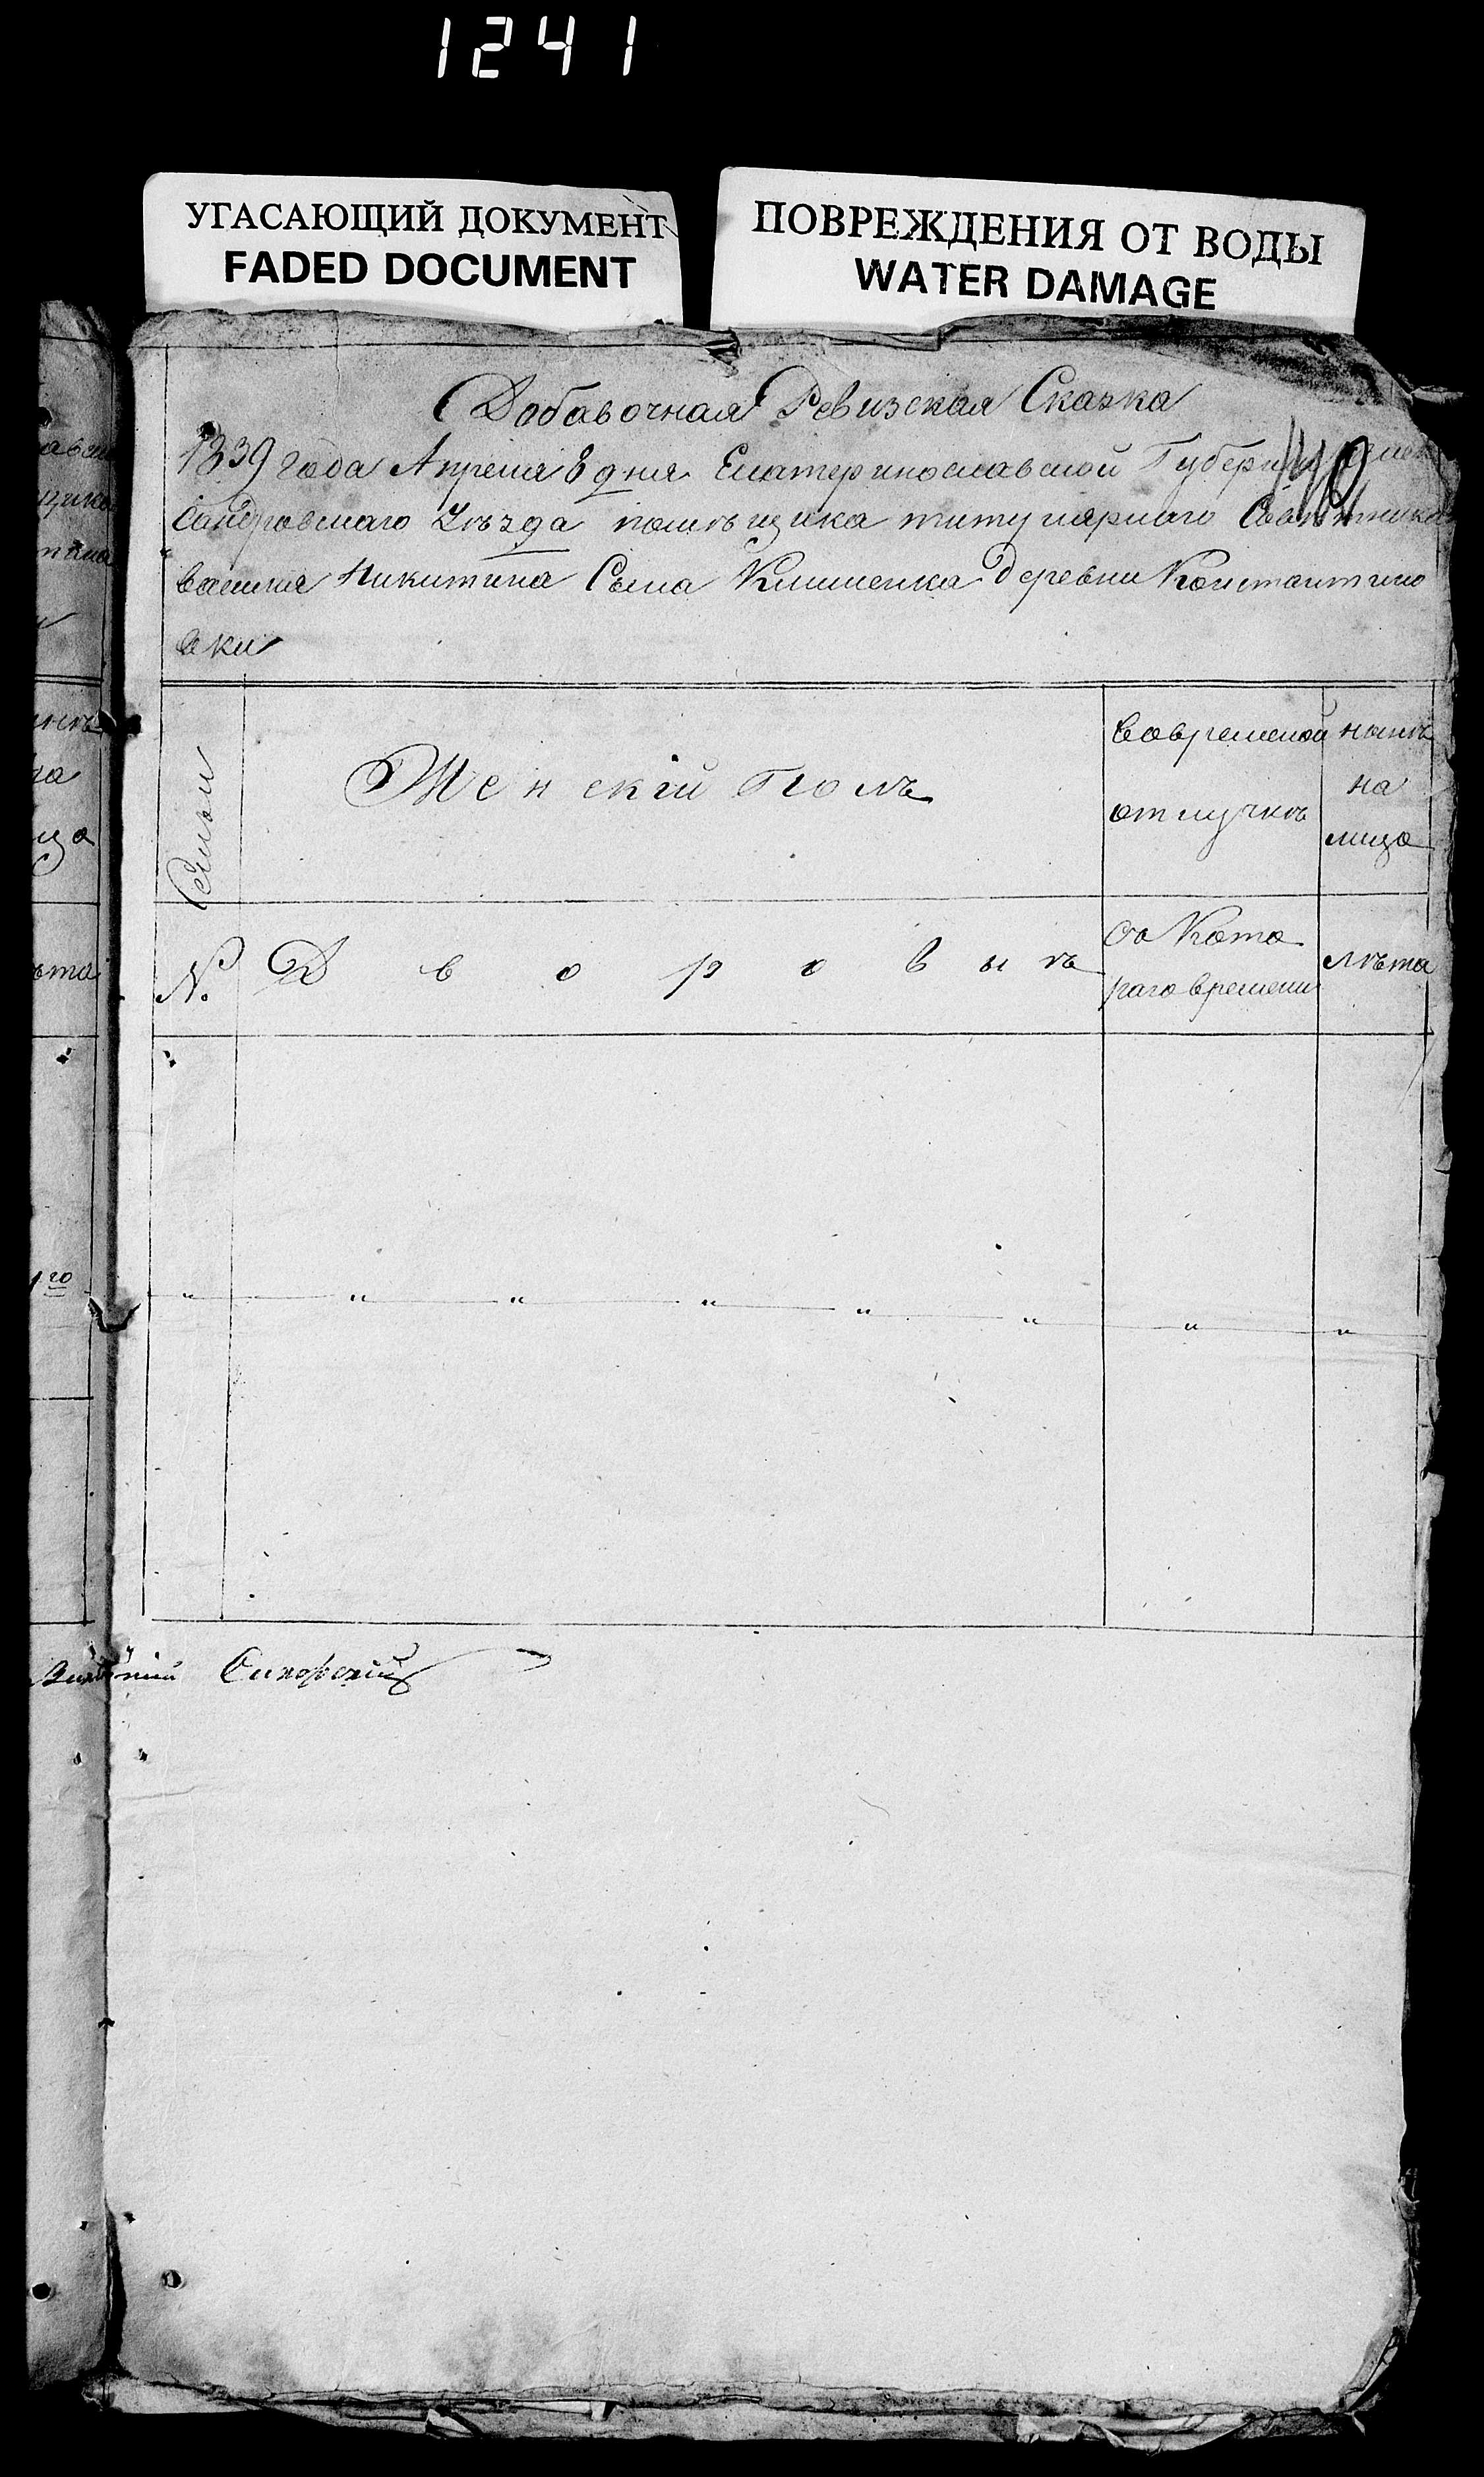 1241
УГАСАЮЩИЙ ДОКУМЕНТ
FADED DOCUMENT
ПОВРЕЖДЕНИЯ ОТ ВОДЫ
WATER DAMAGE
Добавочная Ревизская Сказка
1839 года Апреля 8 дня Екатеринославской Губернии
140
сандровскаго Уѣзда помѣщика титулярнаго Советника
василия Никитина Сына Клименка деревни Константино
вки
Семьи
Женскій Полъ
вовременой
отлучкѣ
нынѣ
на
лицо
№
Дворовыхъ
Съ Кото
раго времени
лѣта